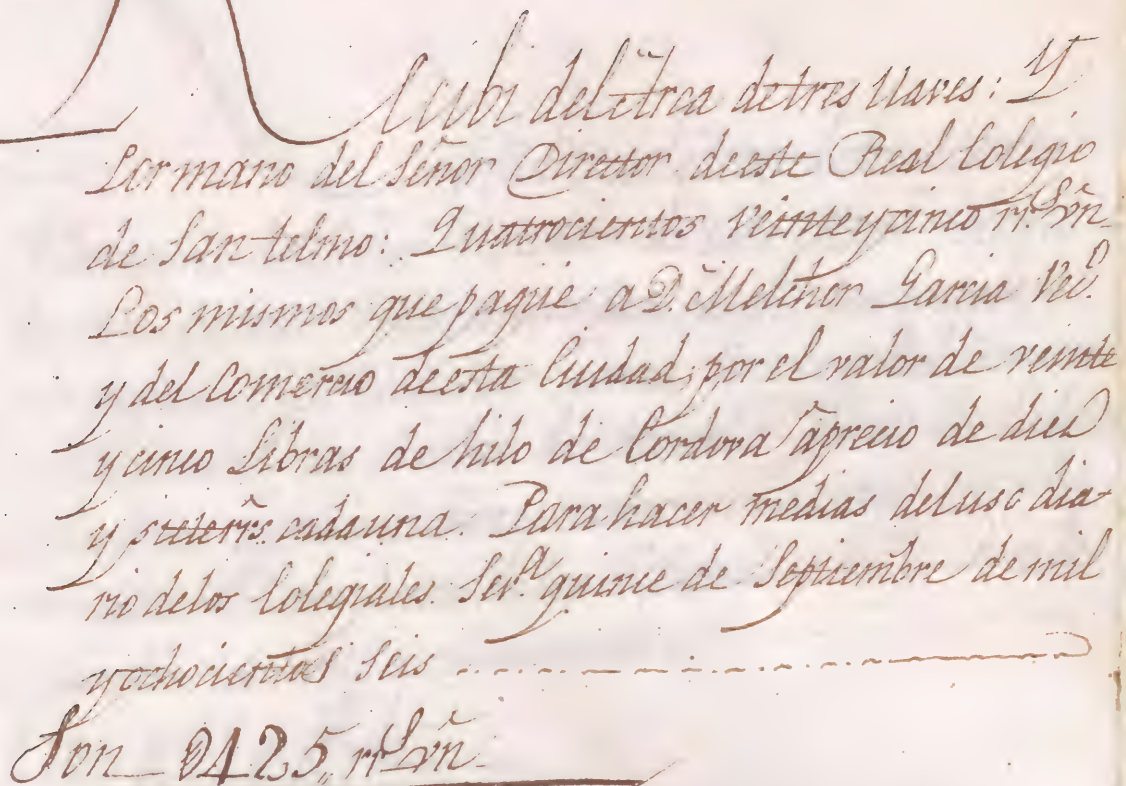 Recibi del Arca de tres llaves: Y
Por mano del Señor Director de este Real Colegio
de San telmo: Quatrocientos veinte y cinco rr.s vn
Los mismos que pague a D. Melchor Garcia Vec.o
y del Comercio de esta Ciudad, por el valor de veinte
y cinco Libras de hilo de Cordova aprecio de diez
y siete rr.s cada una. Para hacer medias del uso dia-
rio delos Colegiales. Sev.a quince de Septiembre de mil
y ochocientos Seis
Son 0425,, rr.s vn.